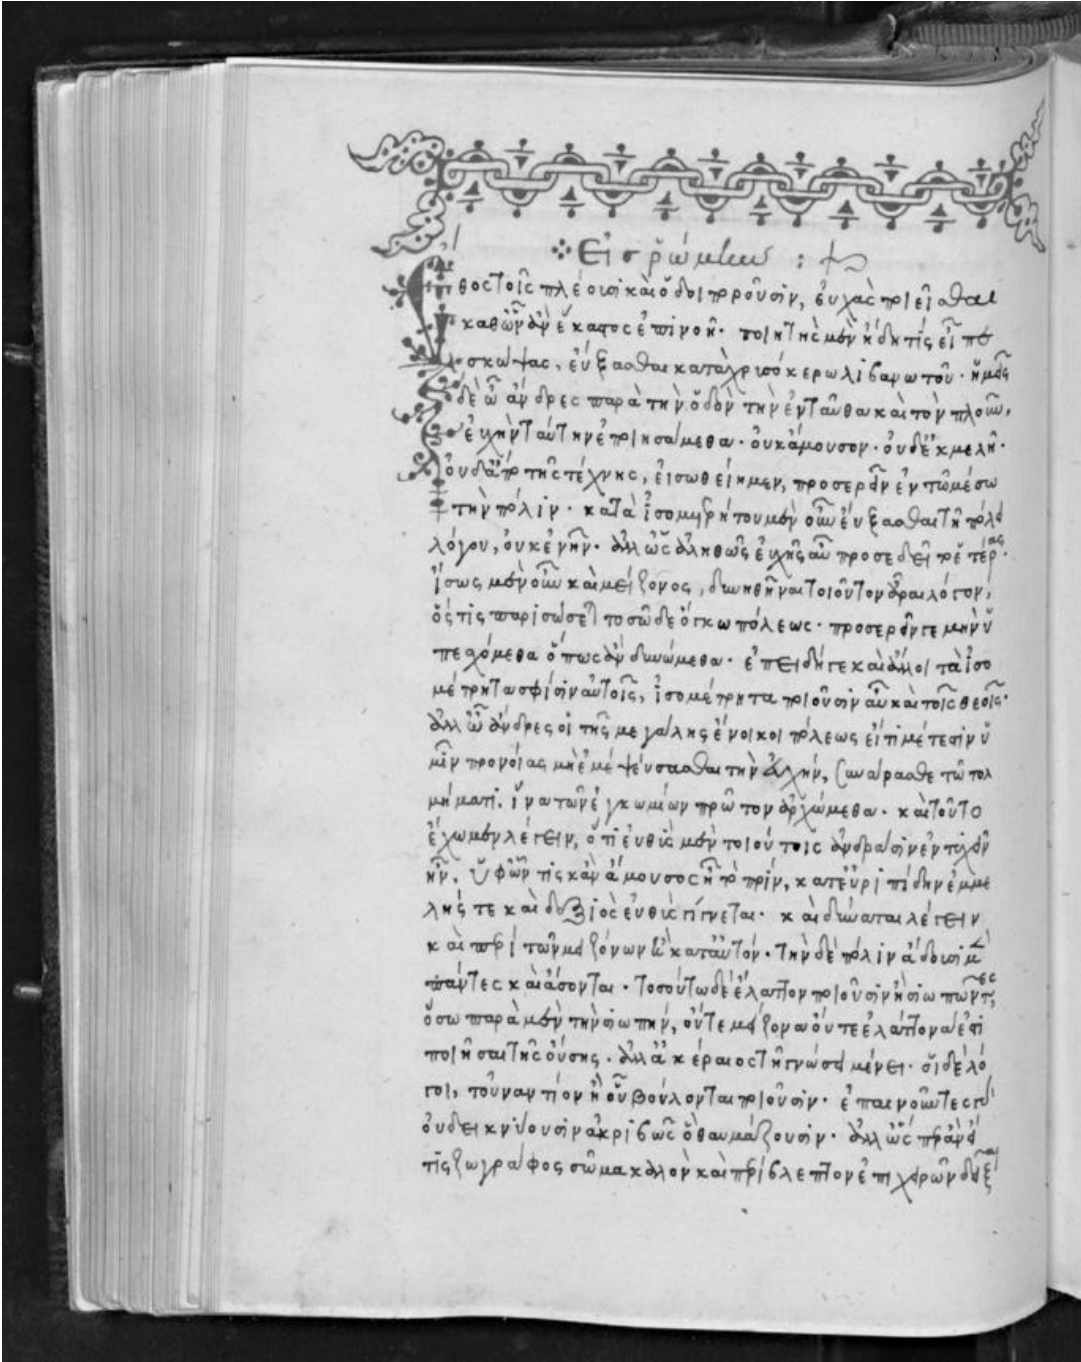 Εἰς ῥώμην :
Ἔθος τοῖς πλέουσι καὶ ὁδοιποροῦσιν, εὐχὰς ποιεῖσθαι
καθ' ὧν ἂν ἕκαστος ἐπινοῇ. ποιητὴς μὲν ἤδη τίς εἶπε
σκώψας, εὔξασθαι κατὰ χρυσόκερω λιβανωτοῦ. ἡμεῖς
δὲ ὦ ἄνδρες παρὰ τὴν ὁδὸν τὴν ἐνταῦθα καὶ τὸν πλοῦν,
εὐχὴν ταύτην ἐποιησάμεθα. οὐκ ἄμουσον. οὐδ' ἐκμελῆ.
οὐδ' ἄπο τῆς τέχνης, εἰ σωθείημεν, προσερεῖν ἐν τῷ μέσω
τὴν πόλιν. κατὰ ἰσομετρήτου μὲν οὖν εὔξασθαι τῇ πόλει
λόγου, οὐκ ἐνῆν. ἀλλ' ὡς ἀληθῶς εὐχῆς αὖ προσεδεῖτο ἑτέρας.
ἴσως μὲν οὖν καὶ μείζονος, δυνηθῆναι τοιοῦτον ἆραι λόγον,
ὅς τις παρισώσει τοσῶδε ὄγκω πόλεως. προσερεῖν γε μὴν ὑ
πεσχόμεθα ὅπως ἂν δυνώμεθα. ἐπειδή γε καὶ ἄλλοι τὰ ἰσο
μέτρητα σφίσιν αὐτοῖς, ἰσομέτρητα ποιοῦσιν αὖ καὶ τοῖς θεοῖς.
ἀλλ' ὦ ἄνδρες οἱ τῆς μεγάλης ἔνοικοι πόλεως εἴ τι μέτεστιν ὑ
μῖν προνοίας μὴ ἐμὲ ψεύσασθαι τὴν εὐχήν, συνάρασθε τῷ τολ
μήματι. ἵνα τῶν ἐγκωμίων πρῶτον ἀρχώμεθα. καὶ τοῦτο
ἔχωμεν λέγειν, ὅτι εὐθὺς μὲν τοιούτοις ἀνδράσιν ἐντυχεῖν
ἦν. ὑφ' ὧν τις κἂν ἄμουσος ᾖ τὸ πρίν, κατ' εὐριπίδην ἐμμε
λής τε καὶ δεξιὸς εὐθὺς γίγνεται. καὶ δύναται λέγειν
καὶ περὶ τῶν μειζόνων ἢ κατ' αὐτόν. τὴν δὲ πόλιν ἄδουσι μὲν
πάντες καὶ ἄσονται. τοσούτω δὲ ἔλαττον ποιοῦσιν ἢ σιωπῶντες,
ὅσω παρὰ μὲν τὴν σιωπήν, οὔτε μείζονα οὔτε ἐλάττονα ἔστι
ποιῆσαι τῆς οὔσης. ἀλλ' ἀκέραιος τῇ γνώσει μένει. οἱ δὲ λό
γοι, τοὐναντίον ἢ οὗ βούλονται ποιοῦσιν. ἐπαινοῦντες γὰρ
οὐ δεικνύουσιν ἀκριβῶς ὃ θαυμάζουσιν. ἀλλ' ὥσπερ ἂν εἴ
τις ζωγράφος σῶμα καλὸν καὶ περίβλεπτον ἐπιχειρῶν δεῖξαι